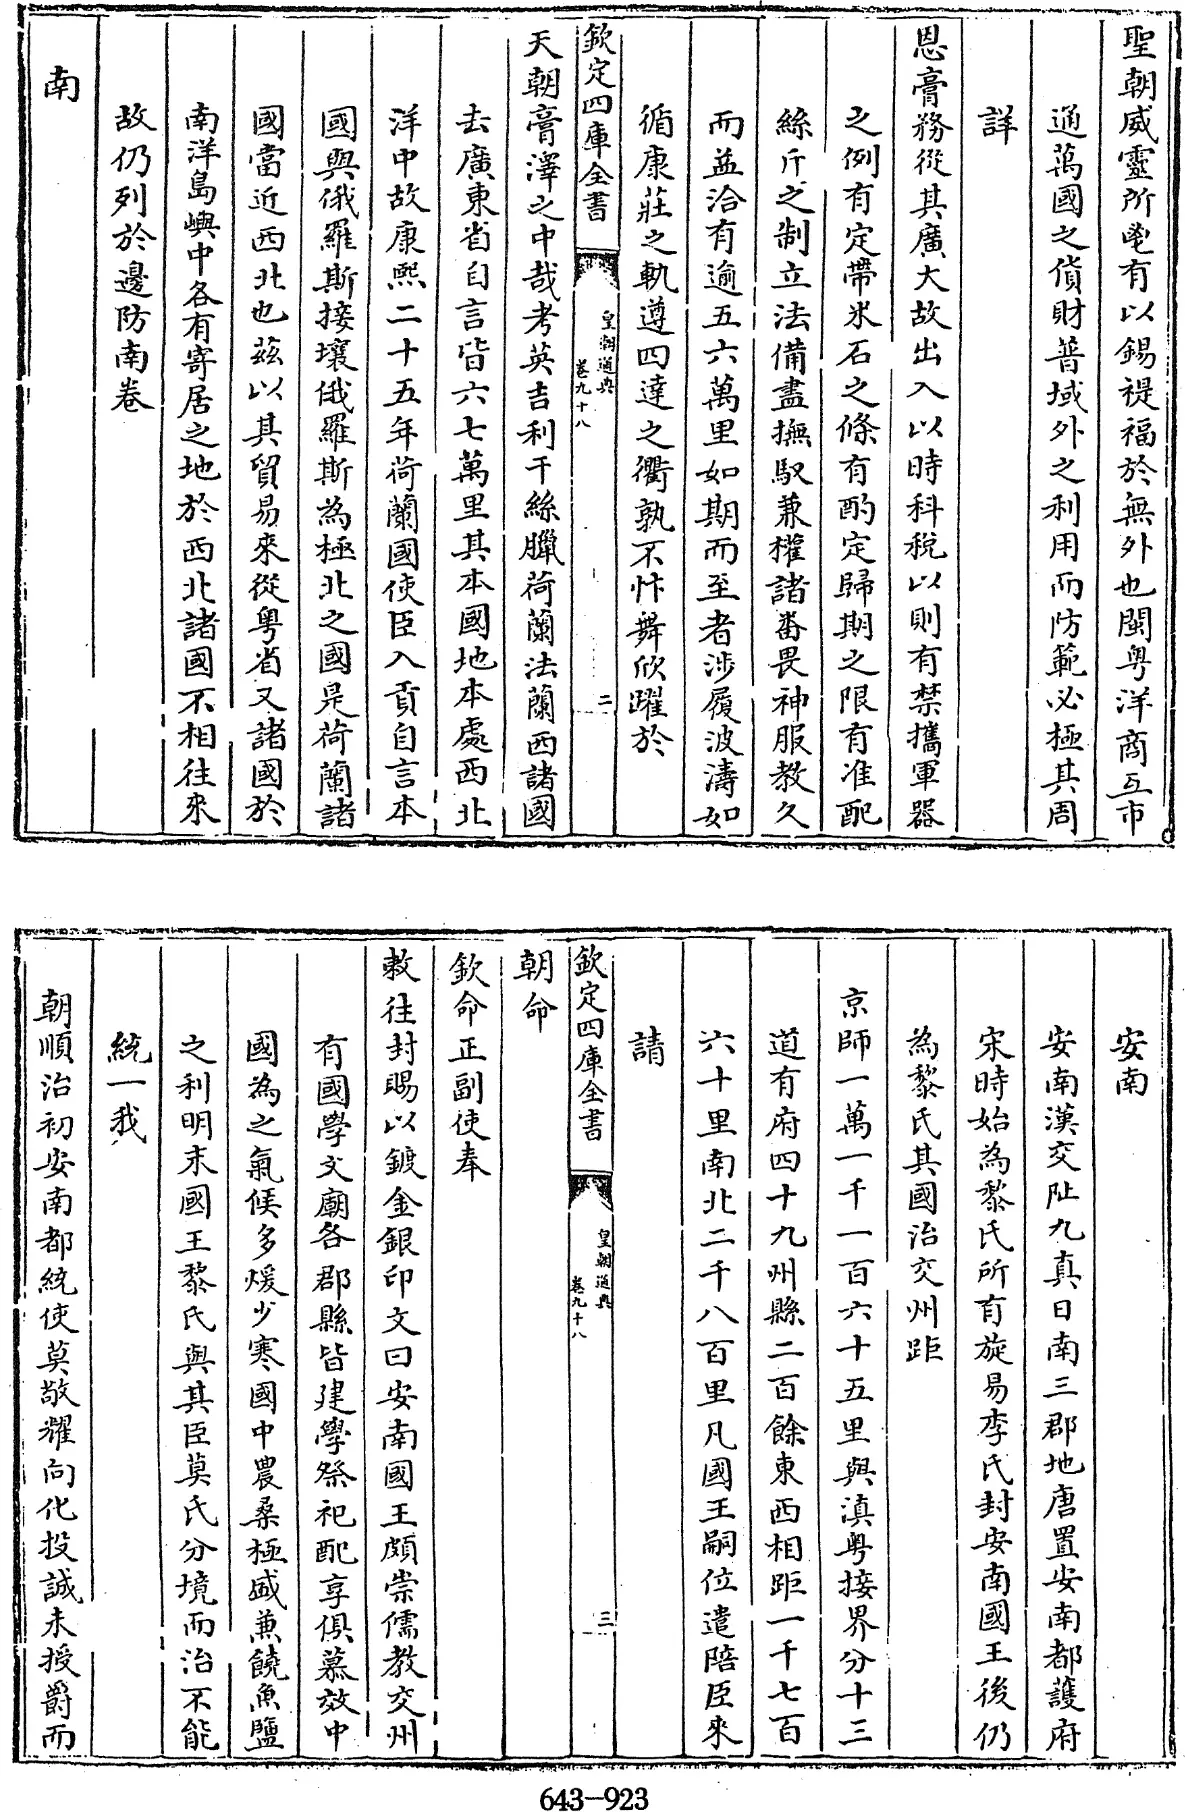 聖朝威靈所鬯有以錫禔福於無外也閩粤洋商互市
通萬國之貨財普域外之利用而防範必極其周
詳
恩膏務從其廣大故出入以時科税以則有禁攜軍器
之例有定帶米石之條有酌定歸期之限有准配
絲斤之制立法備盡撫馭兼權諸畨畏神服教久
而益洽有逾五六萬里如期而至者涉履波濤如
循康莊之軌遵四達之衢孰不忭舞欣躍於
欽定四庫全書
皇朝通典
卷九十八
二
天朝膏澤之中哉考英吉利干絲臘荷蘭法蘭西諸國
去廣東省自言皆六七萬里其本國地本處西北
洋中故康熙二十五年荷蘭國使臣入貢自言本
國與俄羅斯接壤俄羅斯為極北之國是荷蘭諸
國當近西北也兹以其貿易來從粤省又諸國於
南洋島嶼中各有寄居之地於西北諸國不相往來
故仍列於邊防南卷
南
安南
安南漢交阯九真日南三郡地唐置安南都護府
宋時始為黎氏所有旋易李氏封安南國王後仍
為黎氏其國治交州距
京師一萬一千一百六十五里與滇粤接界分十三
道有府四十九州縣二百餘東西相距一千七百
六十里南北二千八百里凡國王嗣位遣陪臣來
請
朝命
欽定四庫全書
皇朝通典
卷九十八
三
欽命正副使奉
敕往封賜以鍍金銀印文曰安南國王頗崇儒教交州
有國學文廟各郡縣皆建學祭祀配享俱慕效中
國為之氣候多煖少寒國中農桑極盛兼饒魚鹽
之利明末國王黎氏與其臣莫氏分境而治不能
統一我
朝順治初安南都統使莫敬耀向化投誠未授爵而
643-923